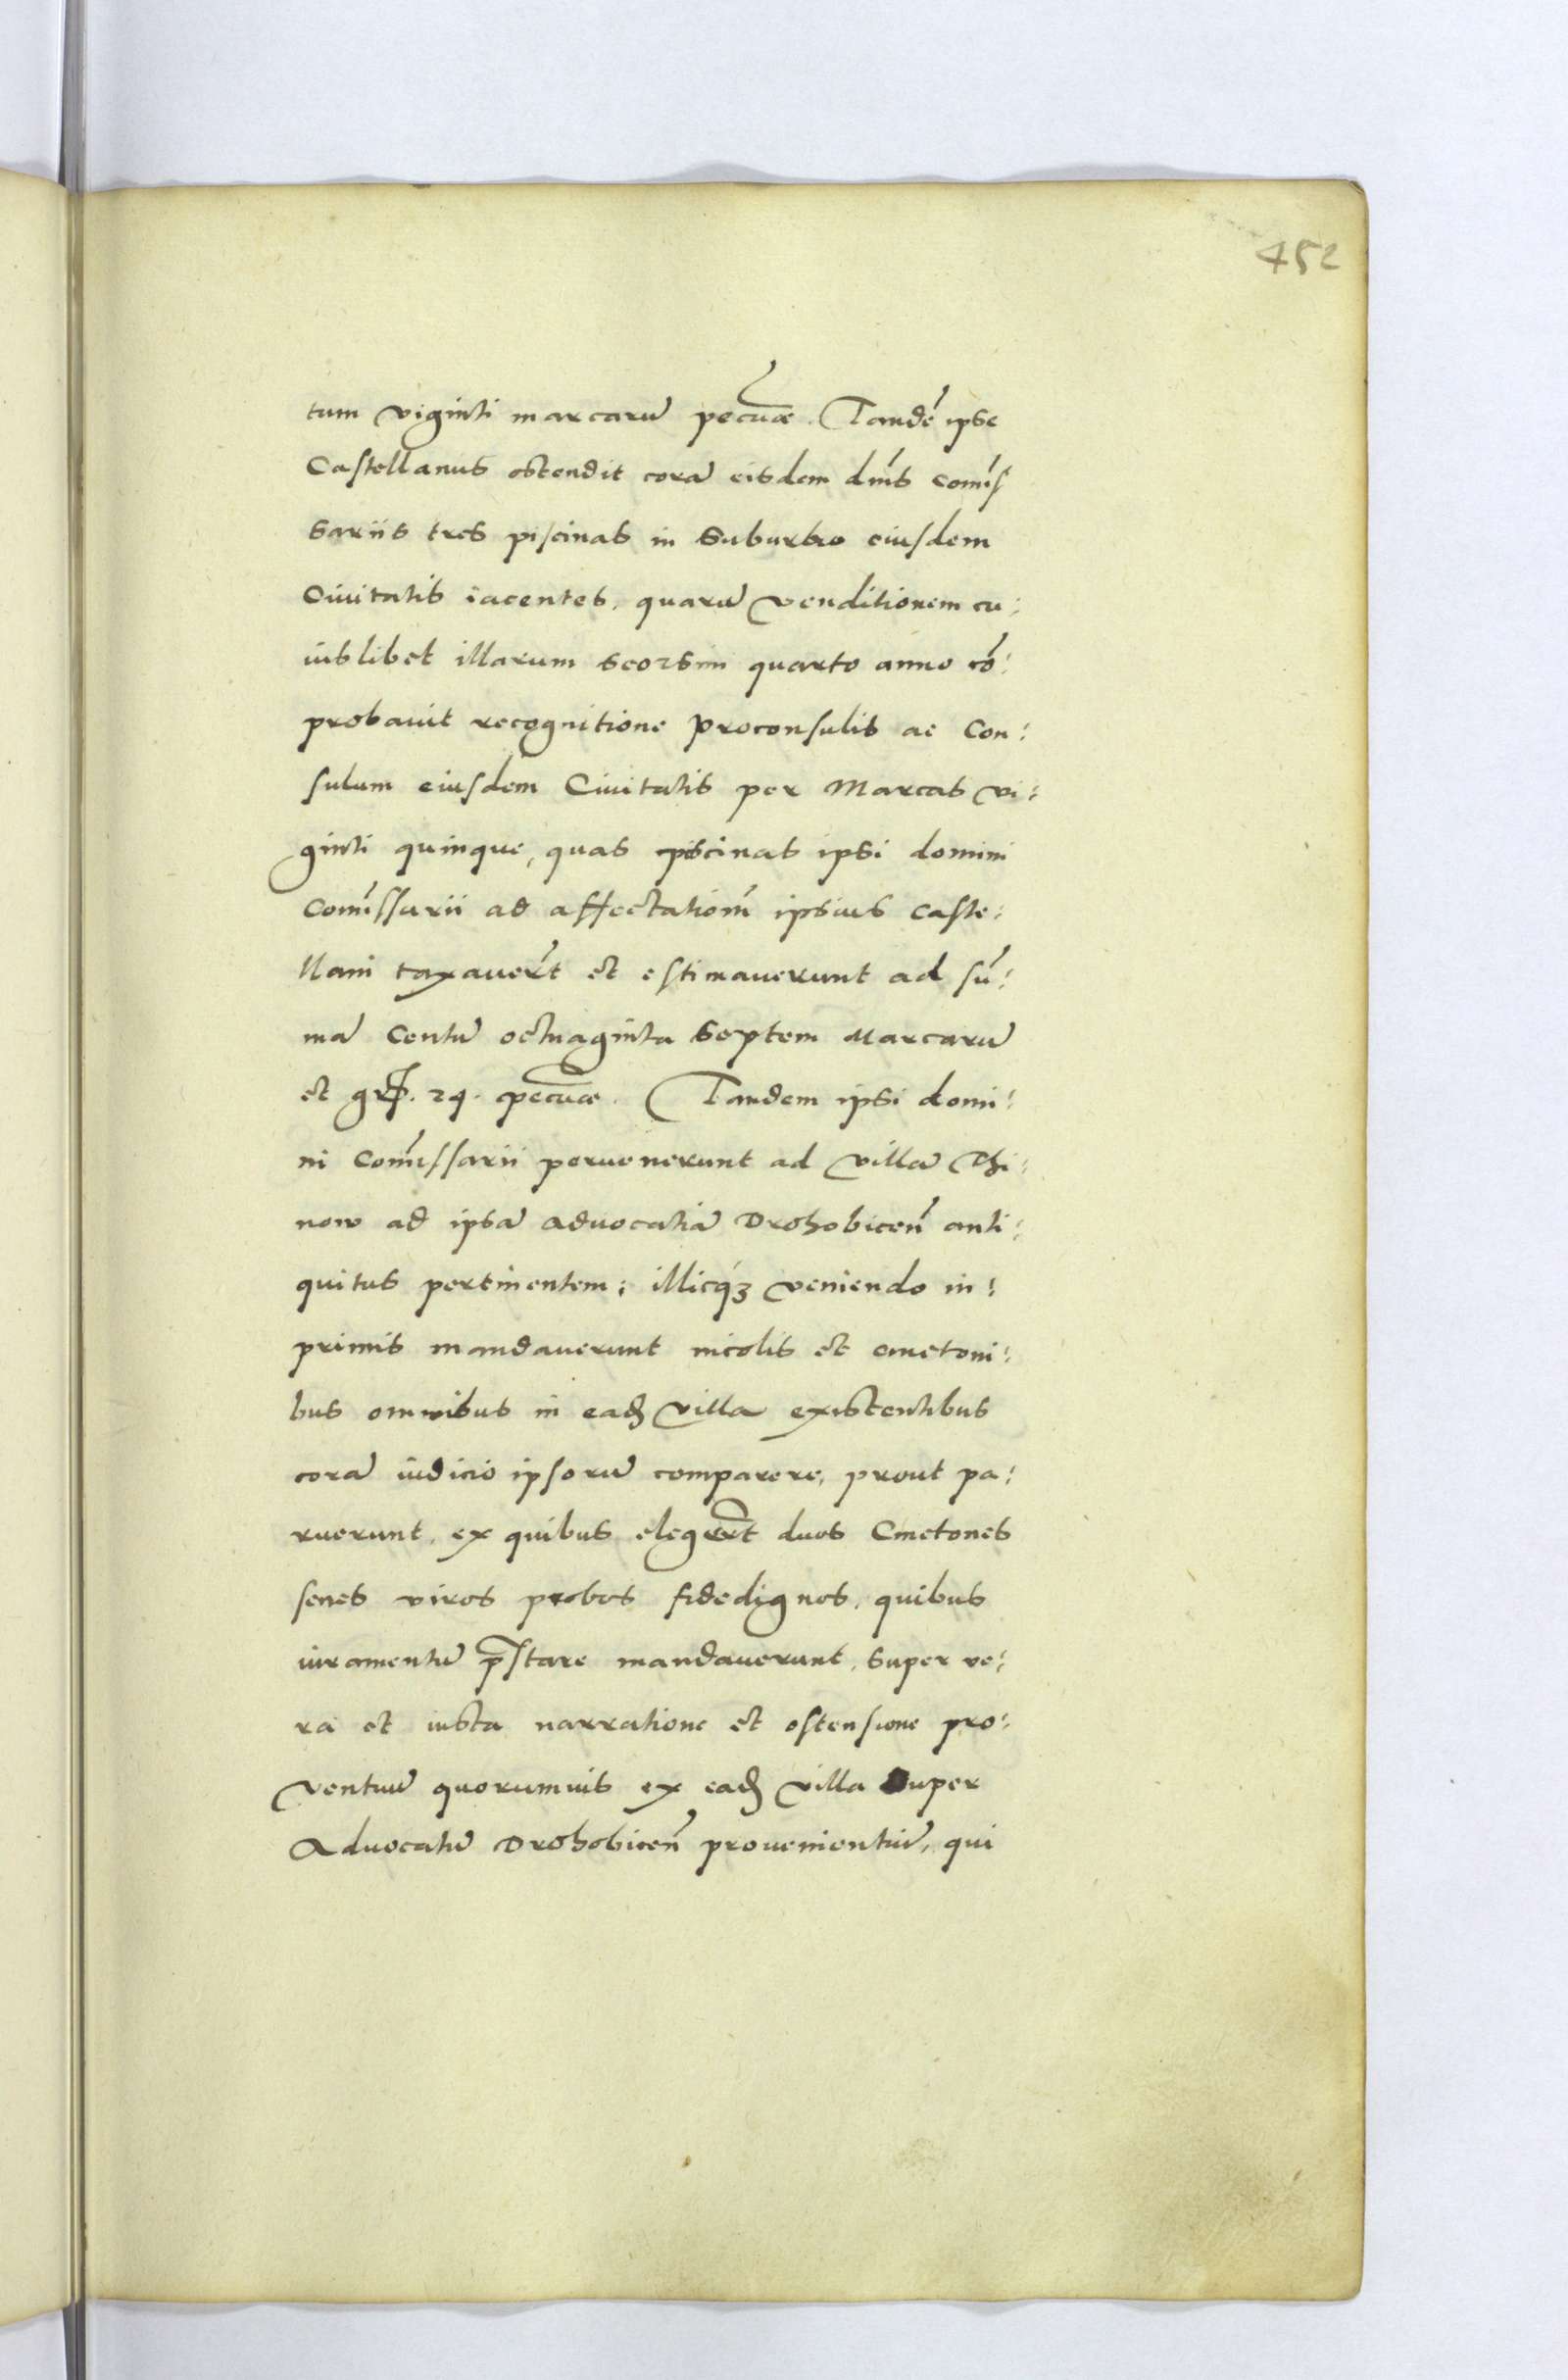 452
tum viginti marcarū pecuæ. Tandē ipse
Castellanus ostendit corā eisdem dnīs comīs
sariis tres piscinas in suburbio eiusdem
Ciuitatis iacentes, quarū venditionem cu:
iuslibet illarum seorsim quarto anno cō:
probauit recognitione proconsulis ac Con:
sulum eiusdem Ciuitatis per Marcas vi:
ginti quinque, quas piscinas ipsi domini
Comīssarii ad affectationē ipsius Caste:
llani taxauert̄ et estimauerunt ad sū:
mā Centū octuaginta septem Marcarū
et gr. 24. pecuæ. Tandem ipsi domi:
ni Comīssarii peruenerunt ad villā Thi:
now ad ipsā aduocatiā Drohobicen̄ anti:
quitus pertinentem; illicq́ꝫ veniendo in:
primis mandauerunt incolis et cmetoni:
bus omnibus in eadꝫ villa existentibus
corā iudicio ipsorū comparere, prout pa:
ruerunt, ex quibus elegert̄ duos Cmetones
senes viros probos fidedignos, quibus
iuramentū p̄stare mandauerunt, super ve:
ra et iusta narratione et ostensione pro:
ventuū quorumuis ex eadꝫ villa super
Aduocatū Drohobicen̄ prouenientiū, qui